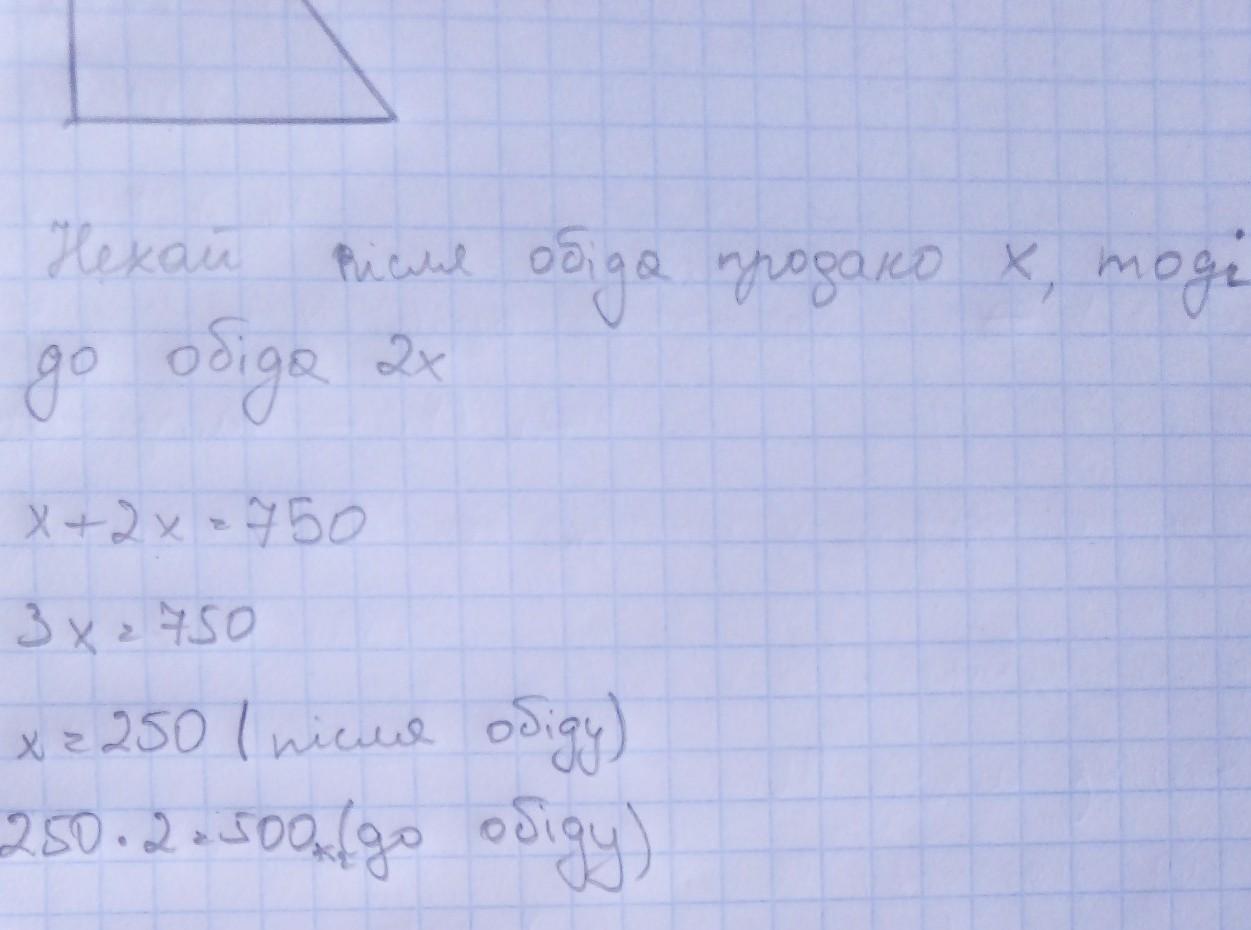 Нехай після обіда продано x, тоді
до обіда 2x
x+2x=750
3x=750
x=250 (після обіду)
250·2=500кг(до обіду)